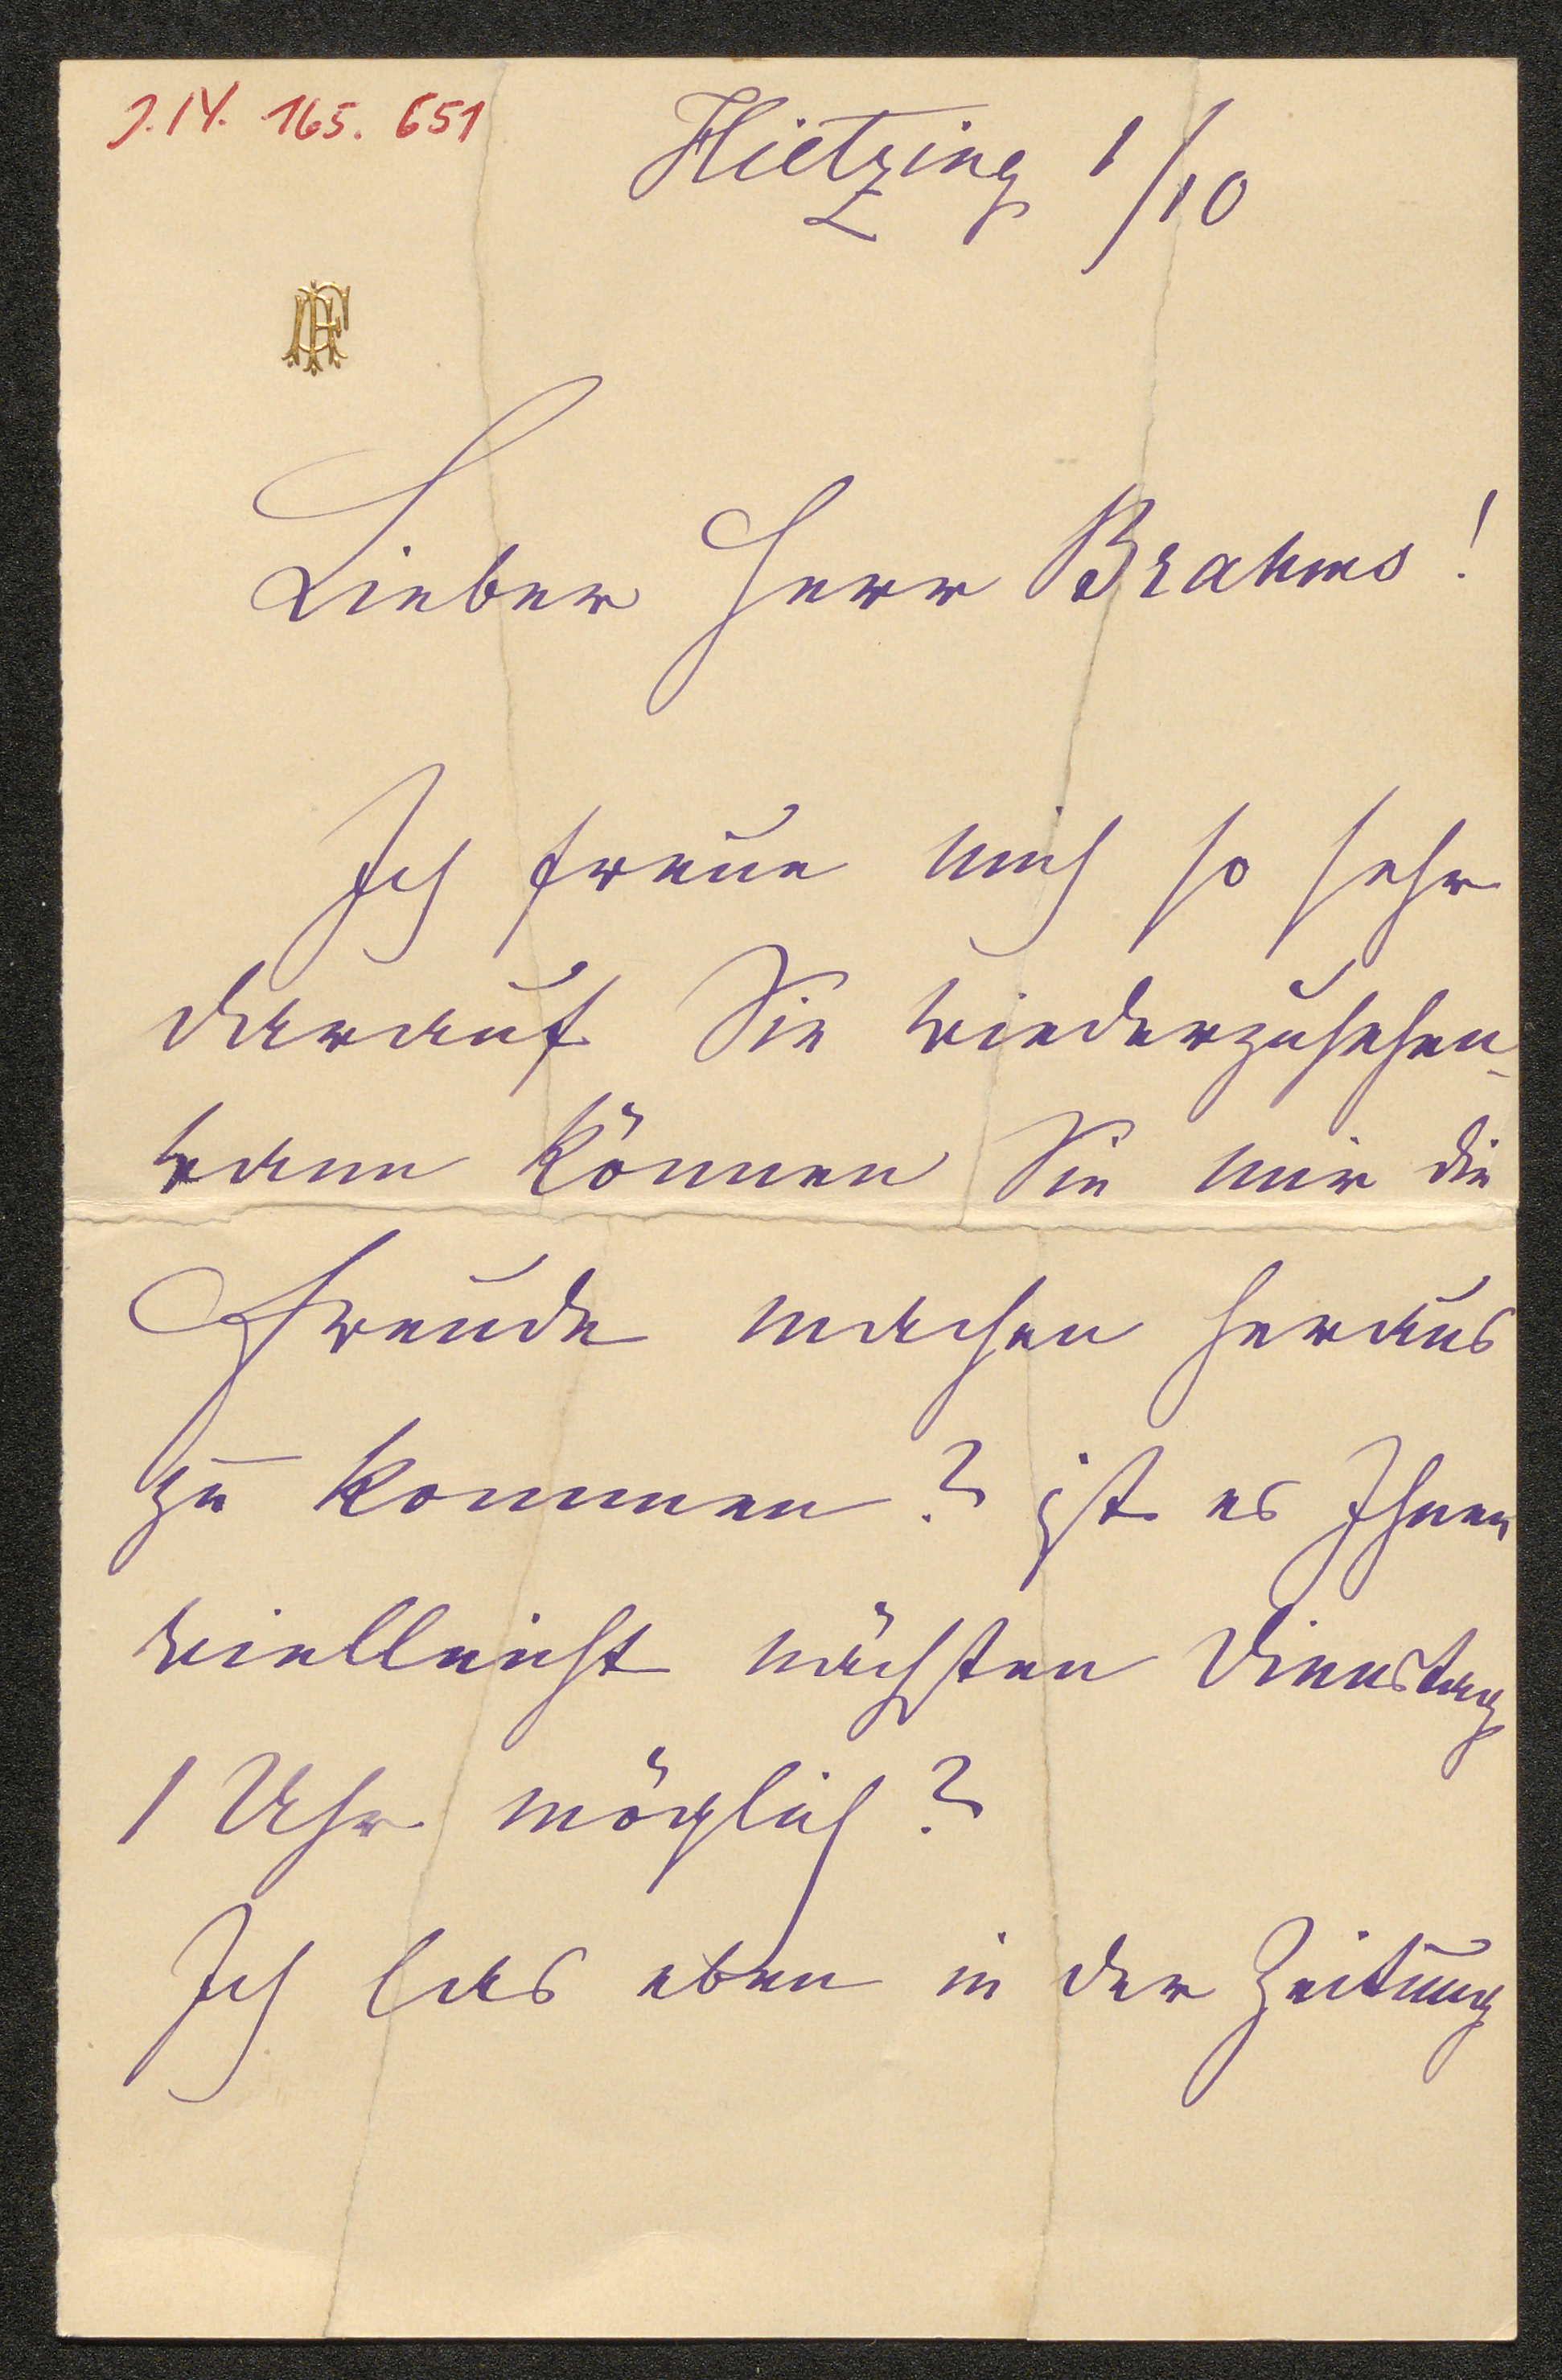 J.N. 165.651
Hietzing 1/10
Lieber Herr Brahms!
Ich freue mich so sehr
darauf Sie wiederzusehen_
wann können Sie mir die
Freude machen heraus
zu kommen? ist es Ihnen
vielleicht nächsten Dienstag
1 Uhr möglich?
Ich las eben in der Zeitung